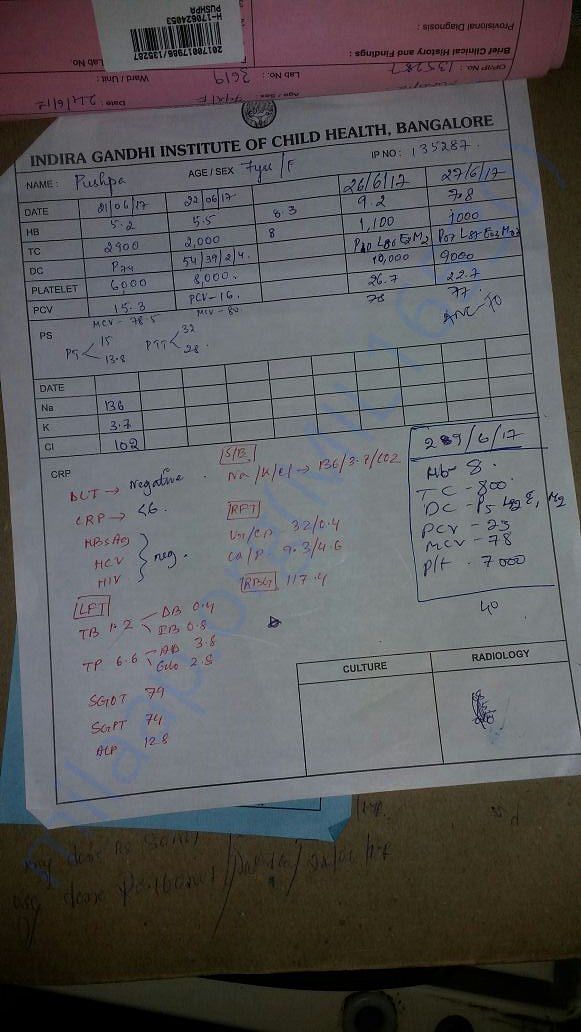 PUSHPA
H-170624053
20170017986/135287
Provisional Diagnosis :
Brief Clinical History and Findings :
OP/IP No : 135287
Lab No : 2619
Ward / Unit :
Lab No
Age / Sex
Date : 21/6/17
INDIRA GANDHI INSTITUTE OF CHILD HEALTH, BANGALORE
NAME : Pushpa AGE / SEX 7yu/F IP NO : 135287.
DATE 21/06/17 22/06/17 26/6/17 27/6/17
HB 5.2 5.5 8.3 9.2 7.8
TC 2900 2,000 8 1,100 1000
DC P74 54/39/2/4. P10 L86 E2 M2
PLATELET 6000 8,000. 10,000 9000
PCV 15.3 PCV-16. 26.7 22.7
MCV- 78.5 MCV- 80 78 77
PS ANC-70
PT 15 13.8 PTT 32 28
DATE
Na 136
K 3.7
Cl 102
CRP
DCT → Negative.
CRP → <6.
HBsAg
HCV
HIV
neg.
LFT
TB 1.2 DB 0.4 IB 0.8
TP 6.6 Alb 3.8 Glo 2.8
SGOT 79
SGPT 74
ALP 128
S/E
Na/K/Cl → 136/3.7/102
RFT
Ur/Cr 32/0.4
Ca/P. 9.3/4.6
RBG 117.4
/6/17
Hb- 8.
TC - 800.
DC - P5
PCV - 23
MCV - 78
Plt. 7000
40
CULTURE RADIOLOGY